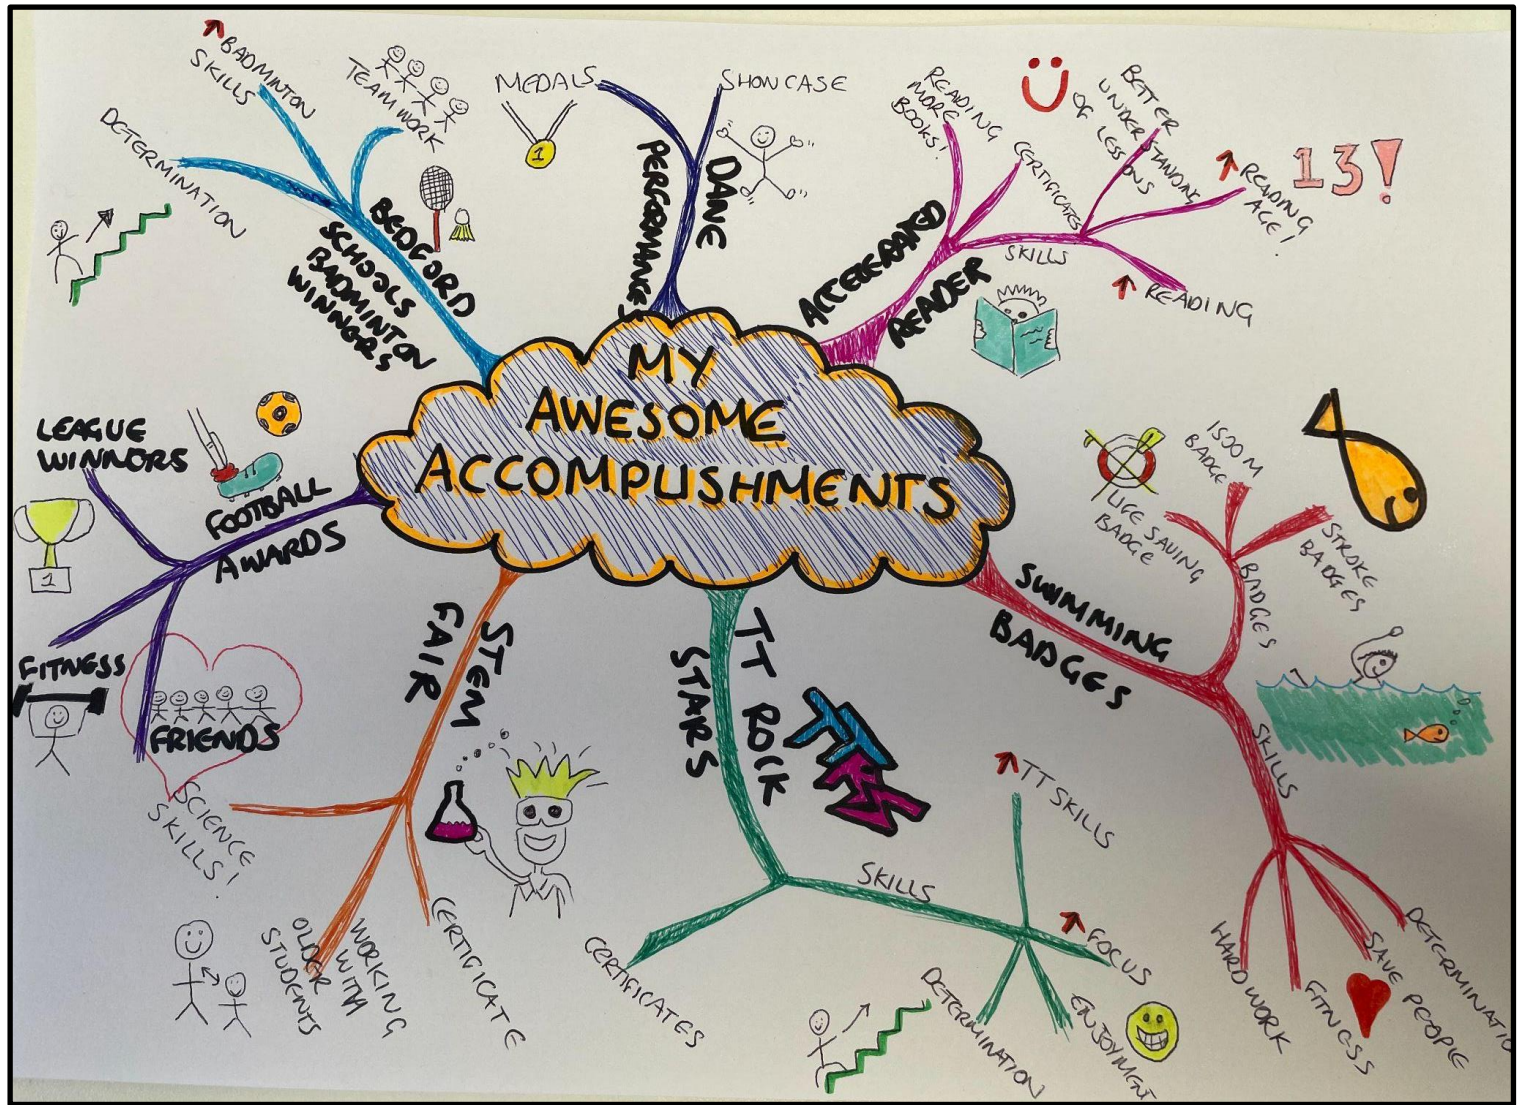 MY
AWESOME
ACCOMPLISHMENTS
BEDFORD
SCHOOLS
BADMINTON
WINNERS
DETERMINATION
BADMINTON
SKILLS
TEAMWORK
DANE
PERFORMANCES
MEDALS
1
SHOWCASE
ACCELERATED
READER
READING
MORE
BOOKS!
CERTIFICATES
SKILLS
BETTER
UNDERSTANDING
OF LESSONS
READING
AGE!
13!
READING
SWIMMING
BADGES
BADGES
LIFE SAVING
BADGE
1500M
BADGE
STROKE
BADGES
SKILLS
HARDWORK
FITNESS
SAVE PEOPLE
DETERMINATIO
TT ROCK
STARS
TTRS
CERTIFICATES
SKILLS
TT SKILLS
FOCUS
ENJOYMENT
DETERMINATION
STEM
FAIR
SCIENCE
SKILLS!
WORKING
WITH
OLDER
STUDENTS
CERTIFICATE
FOOTBALL
AWARDS
LEAGUE
WINNERS
1
FITNESS
FRIENDS